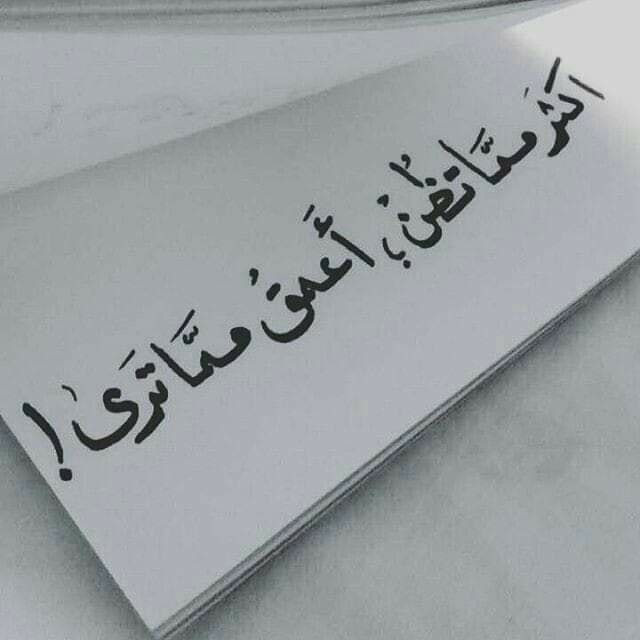 اكثر ممَّا تظُنُ، أَعمقُ ممَّا ترَى!